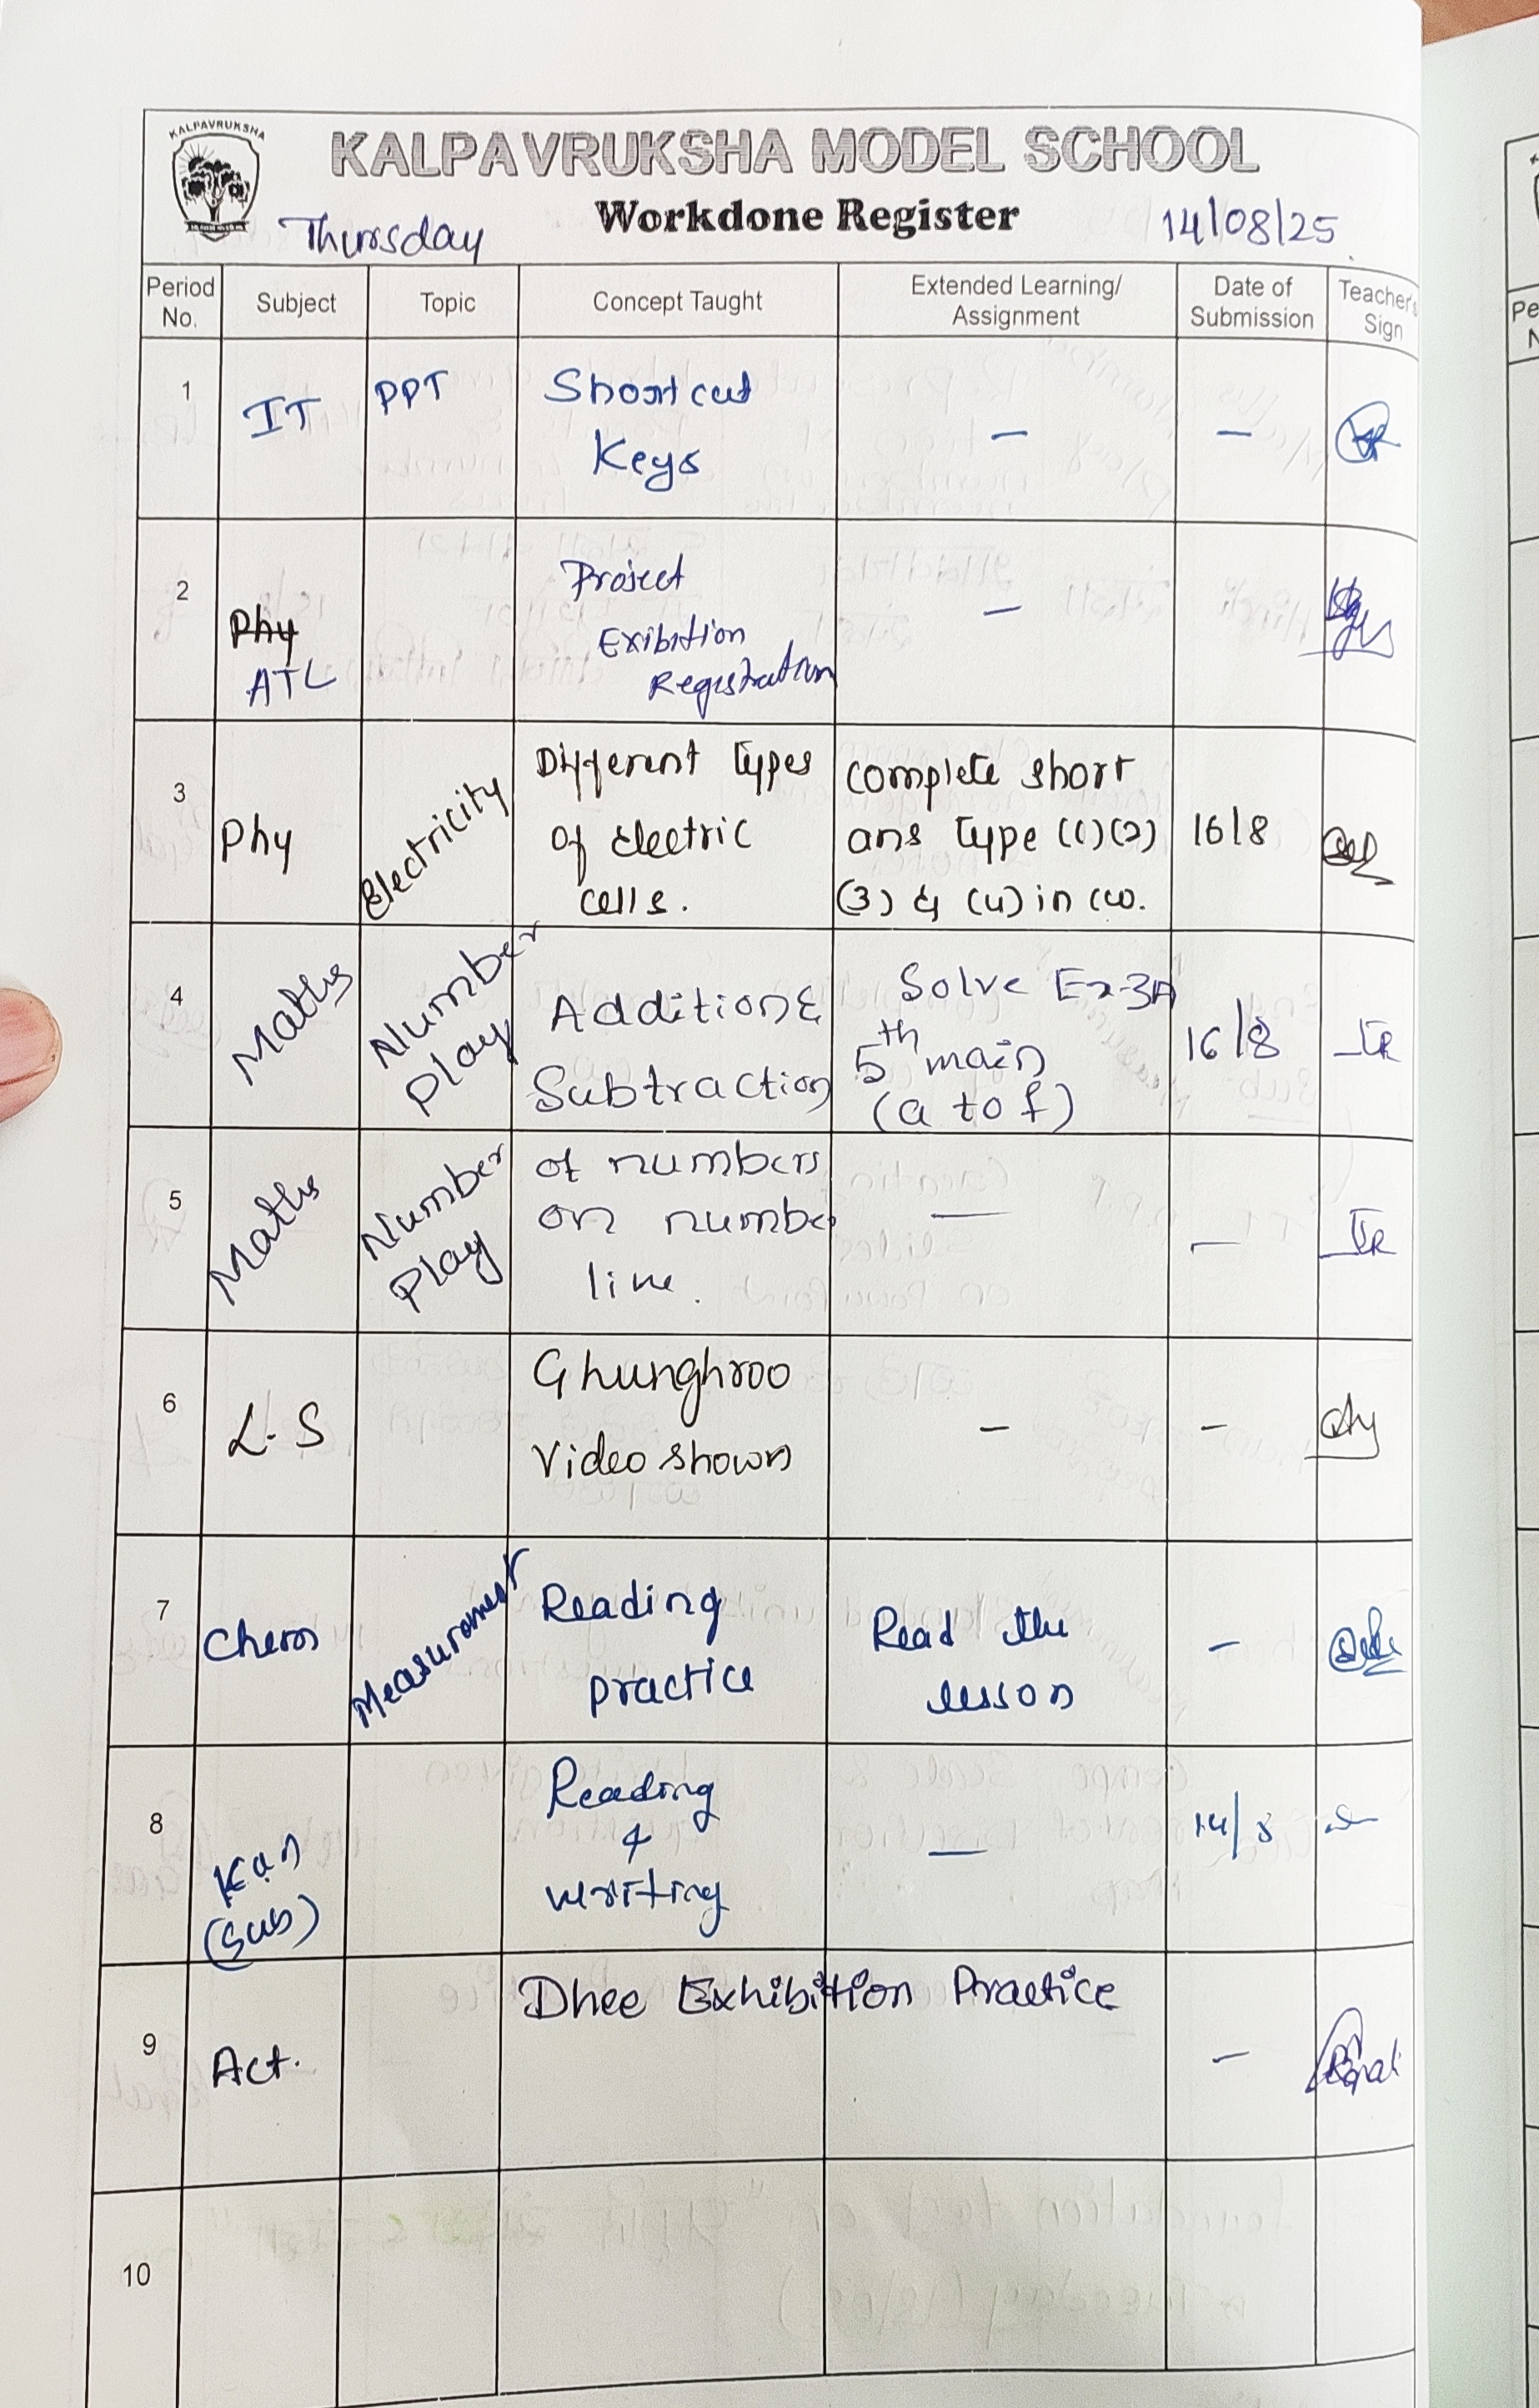 KALPAVRUKSHA
KALPAVRUKSHA MODEL SCHOOL
Workdone Register
Thursday
14/08/25
Period No.
Subject
Topic
Concept Taught
Extended Learning/ Assignment
Date of Submission
Teacher's Sign
1
IT
PPT
Short cut
Keys
—
—
2
Phy
ATL
Project
Exibition
Registration
—
3
Phy
Electricity
Different types
of electric
cells.
complete short
ans type (1)(2)
(3) & (4) in cw.
16/8
4
Maths
Number
Play
Addition &
Subtraction
Solve Ex-3A
5th main
(a to f)
16/8
5
Maths
Number
Play
of numbers
on number
line.
—
—
6
L.S
Ghunghroo
Video shown
—
—
7
Chem
Measurement
Reading
practice
Read the
lesson
—
8
Kan
(Sub)
Reading
&
writing
—
14/8
9
Act.
Dhee Exhibition Practice
—
10